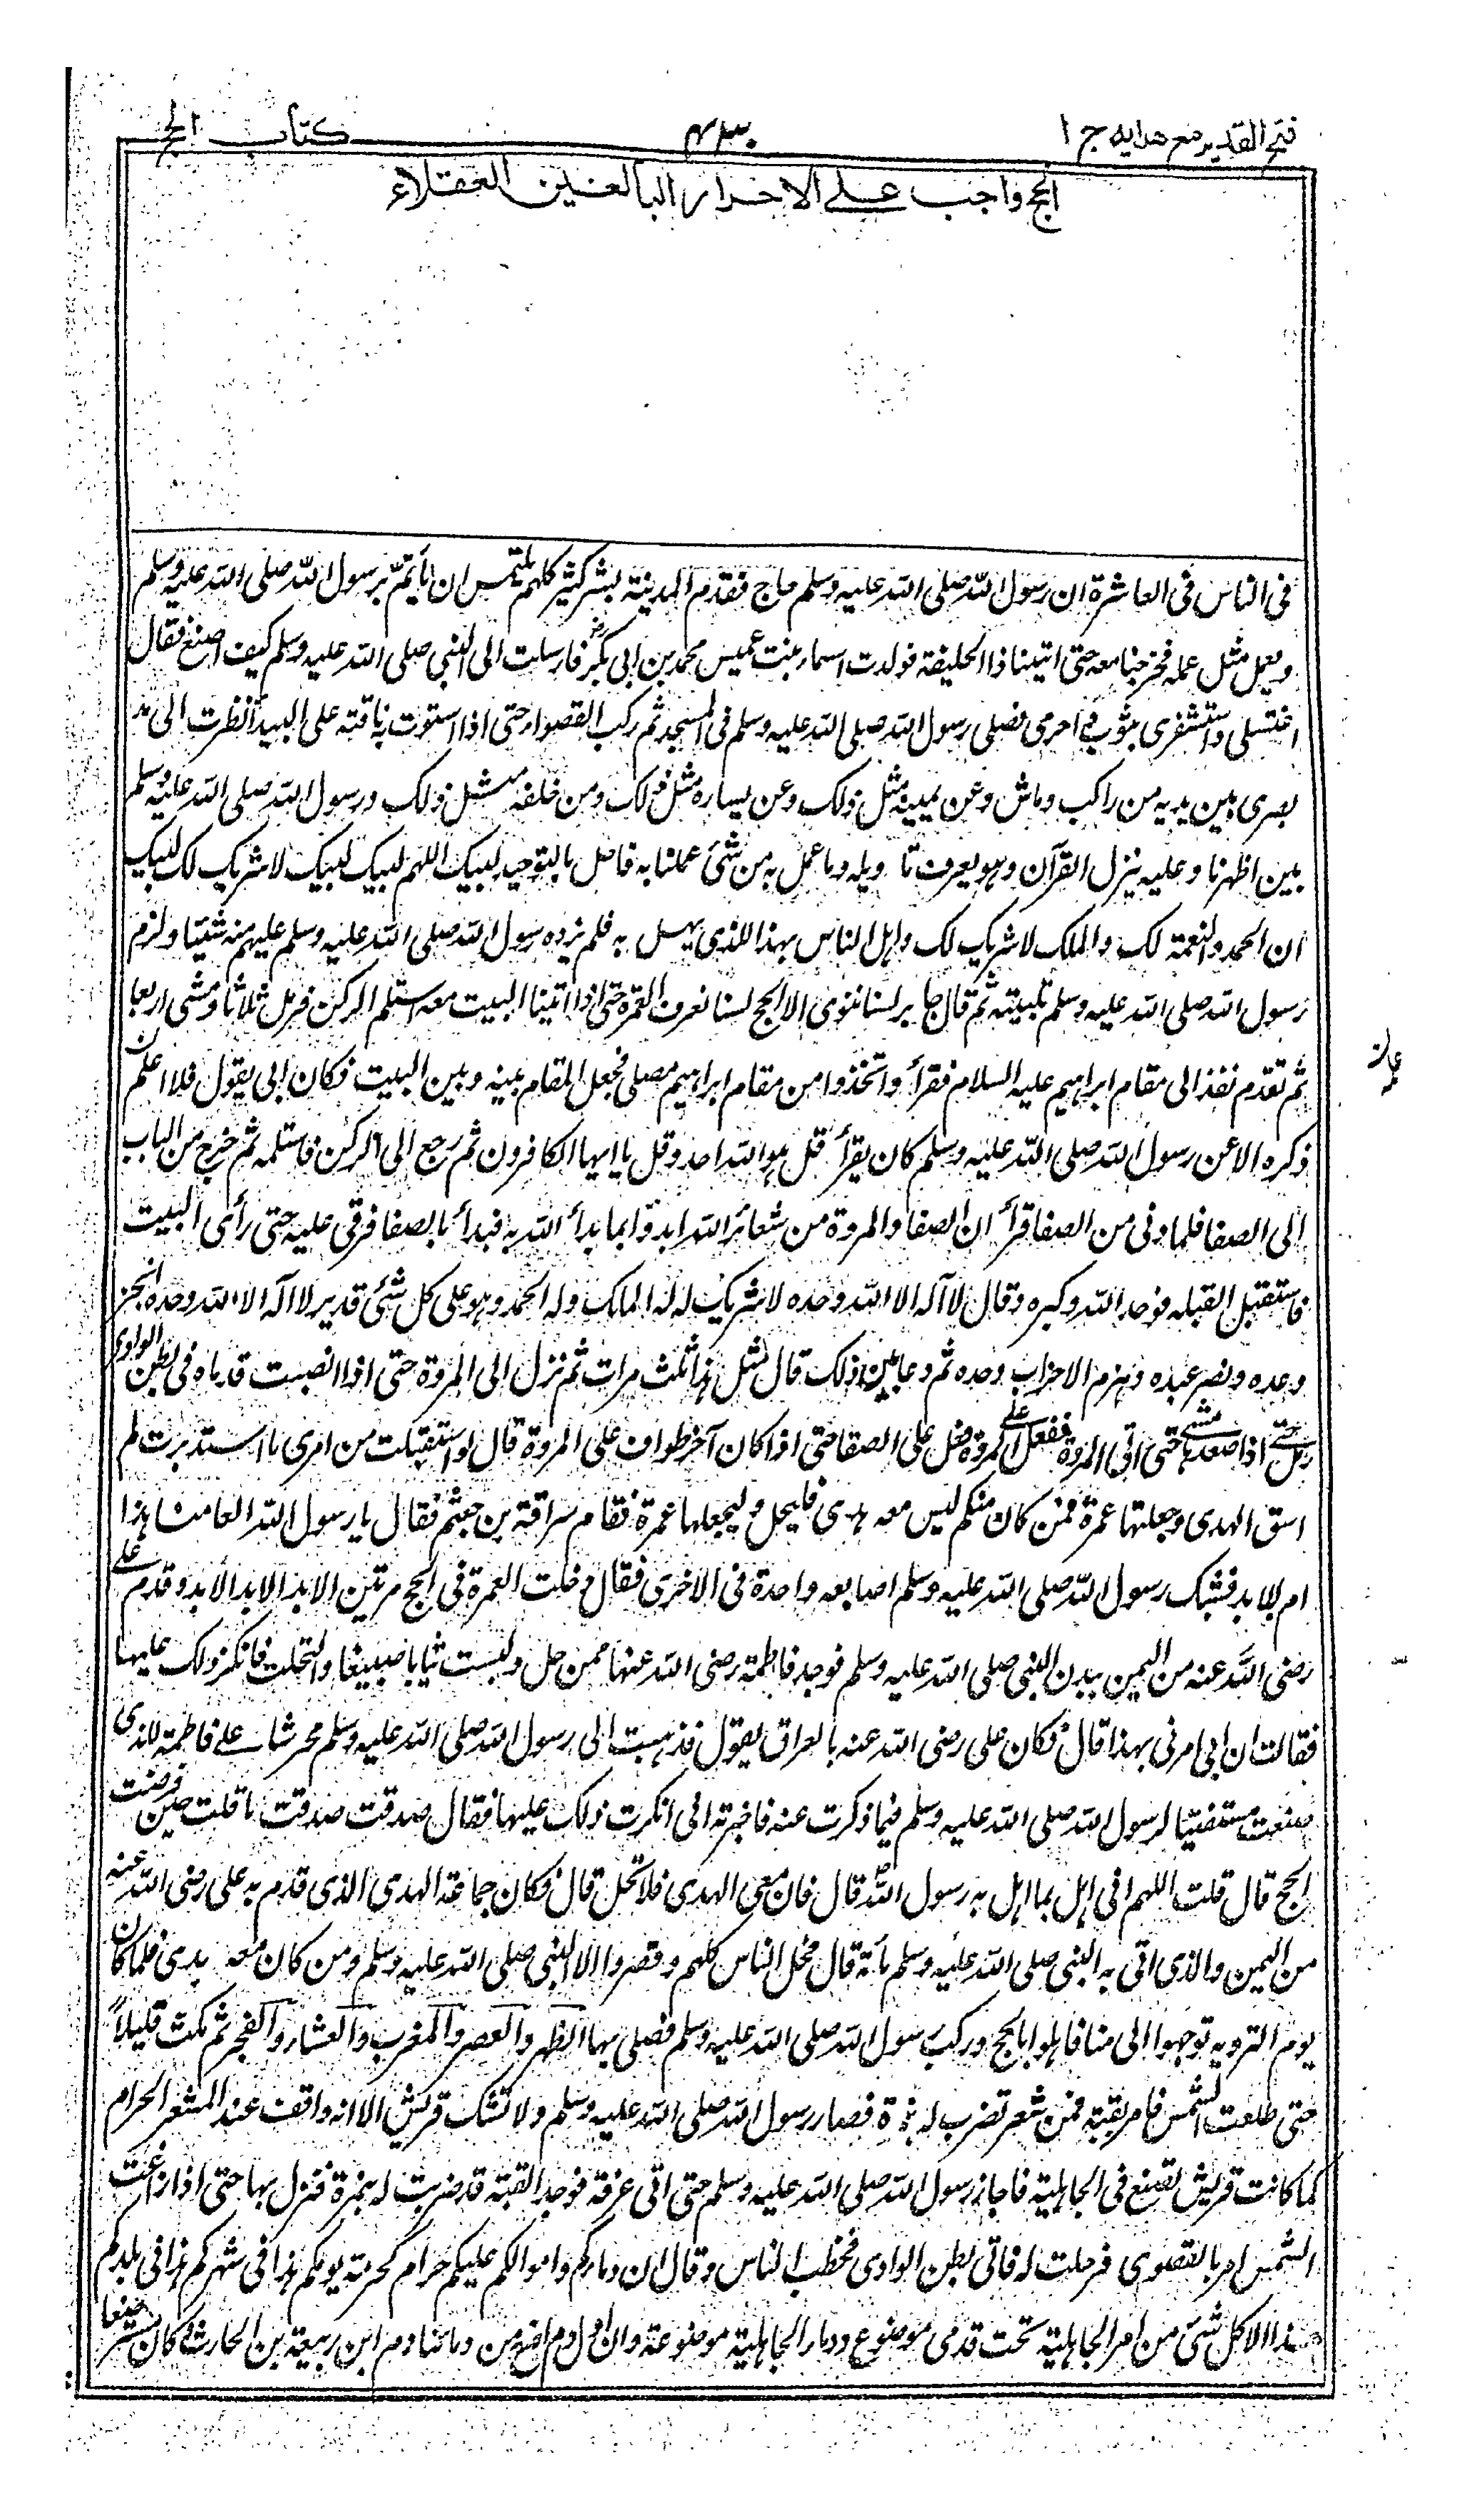 فتح القدير مع هدايه ج ١
كتاب الحج
الحج واجب على الاحرار البالغين العقلاء
فى الناس فى العاشرة ان رسول الله صلى الله عليه وسلم حاج فقدم المدينة بشر كثير كلهم يلتمس ان يأتم برسول الله صلى الله عليه وسلم
ويعمل مثل عمله فخرجنا معه حتى اتينا ذا الحليفة فولدت اسماء بنت عميس محمد بن ابى بكر فارسلت الى النبى صلى الله عليه وسلم كيف اصنع فقال
اغتسلى واستثفرى بثوب واحرمى فصلى رسول الله صلى الله عليه وسلم فى المسجد ثم ركب القصواء حتى اذا استوت به ناقته على البيداء نظرت الى مد
بصرى بين يديه من راكب وماش وعن يمينه مثل ذلك وعن يساره مثل ذلك ومن خلفه مثل ذلك ورسول الله صلى الله عليه وسلم
بين اظهرنا وعليه ينزل القرآن وهو يعرف تاويله وما عمل به من شئ عملنا به فاهل بالتوحيد لبيك اللهم لبيك لبيك لا شريك لك لبيك
ان الحمد والنعمة لك والملك لا شريك لك واهل الناس بهذا اللذى يهل به فلم يرد رسول الله صلى الله عليه وسلم عليهم منه شيئا ولزم
رسول الله صلى الله عليه وسلم تلبيته ثم قال جابر لسنا ننوى الا الحج لسنا نعرف العمرة حتى اذا اتينا البيت معه استلم الركن فرمل ثلاثا ومشى اربعا
ثم تقدم نفذ الى مقام ابراهيم عليه السلام فقرأ واتخذوا من مقام ابراهيم مصلى فجعل المقام بينه وبين البيت فكان ابى يقول فلا اعلمن
ذكره الا عن رسول الله صلى الله عليه وسلم كان يقرأ قل هو الله احد وقل يا ايها الكافرون ثم رجع الى الركن فاستلمه ثم خرج من الباب
الى الصفا فلما دنى من الصفا قرأ ان الصفا والمروة من شعائر الله ابدؤا بما بدأ الله به فبدأ بالصفا فرقى عليه حتى رأى البيت
فاستقبل القبله فوحد الله وكبره وقال لا اله الا الله وحده لا شريك له له الملك وله الحمد وهو على كل شئ قدير لا اله الا الله وحده انجز
وعده ونصر عبده وهزم الاحزاب وحده ثم دعا بين ذلك قال مثل هذا ثلث مرات ثم نزل الى المروة حتى اذا انصبت قدماه فى بطن الوادى
رمل حتى اذا صعدتا مشى حتى اتى المروة ففعل على المروة كما فعل على الصفا حتى اذا كان آخر طواف على المروة قال لو استقبلت من امرى ما استدبرت لم
اسق الهدى وجعلتها عمرة فمن كان منكم ليس معه هدى فليحل وليجعلها عمرة فقام سراقة بن جعشم فقال يا رسول الله العامنا هذا
ام للابد فشبك رسول الله صلى الله عليه وسلم اصابعه واحدة فى الاخرى فقال دخلت العمرة فى الحج مرتين لا بل لابد الابد وقدم على
رضى الله عنه من اليمن ببدن النبى صلى الله عليه وسلم فوجد فاطمة رضى الله عنها ممن حل ولبست ثيابا صبيغا واكتحلت فانكر ذلك عليها
فقالت ان ابى امرنى بهذا قال فكان على رضى الله عنه بالعراق يقول فذهبت الى رسول الله صلى الله عليه وسلم محرشا على فاطمة للذى
صنعت مستفتيا لرسول الله صلى الله عليه وسلم فيما ذكرت عنه فاخبرته انى انكرت ذلك عليها فقال صدقت صدقت ما قلت حين فرضت
الحج قال قلت اللهم انى اهل بما اهل به رسول الله قال فان معى الهدى فلا تحل قال فكان جماعة الهدى الذى قدم به على رضى الله عنه
من اليمن والذى اتى به النبى صلى الله عليه وسلم مائة قال فحل الناس كلهم وقصروا الا النبى صلى الله عليه وسلم ومن كان معه هدى فلما كان
يوم الترويه توجهوا الى منا فاهلوا بالحج وركب رسول الله صلى الله عليه وسلم فصلى بها الظهر والعصر والمغرب والعشاء والفجر ثم مكث قليلا
حتى طلعت الشمس فامر بقبة من شعر تضرب له بنمرة فصار رسول الله صلى الله عليه وسلم ولا تشك قريش الا انه واقف عند المشعر الحرام
كما كانت قريش تصنع فى الجاهلية فاجاز رسول الله صلى الله عليه وسلم حتى اتى عرفة فوجد القبة قد ضربت له بنمرة فنزل بها حتى اذا زاغت
الشمس امر بالقصوى فرحلت له فاتى بطن الوادى فخطب الناس وقال ان دماءكم واموالكم عليكم حرام كحرمة يومكم هذا فى شهركم هذا فى بلدكم
هذا الا كل شئ من امر الجاهلية تحت قدمى موضوع ودماء الجاهلية موضوعة وان اول دم اضع من دمائنا دم ابن ربيعة بن الحارث وكان مسترضعا